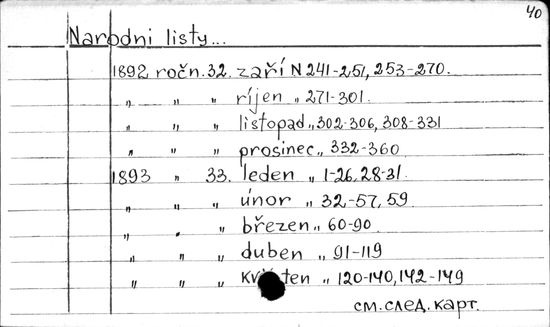 40
Narodni listy...
1892 ročn. 32. září N 241-251, 253-270.
„ „ „ říjen „ 271-301.
„ „ „ listopad „ 302-306, 308-331
„ „ „ prosinec „ 332-360
1893 „ 33. leden „ 1-26, 28-31.
„ „ „ únor „ 32-57, 59
„ „ „ březen „ 60-90
„ „ „ duben „ 91-119
„ „ „ květen „ 120-140, 142-149
см. след. карт.